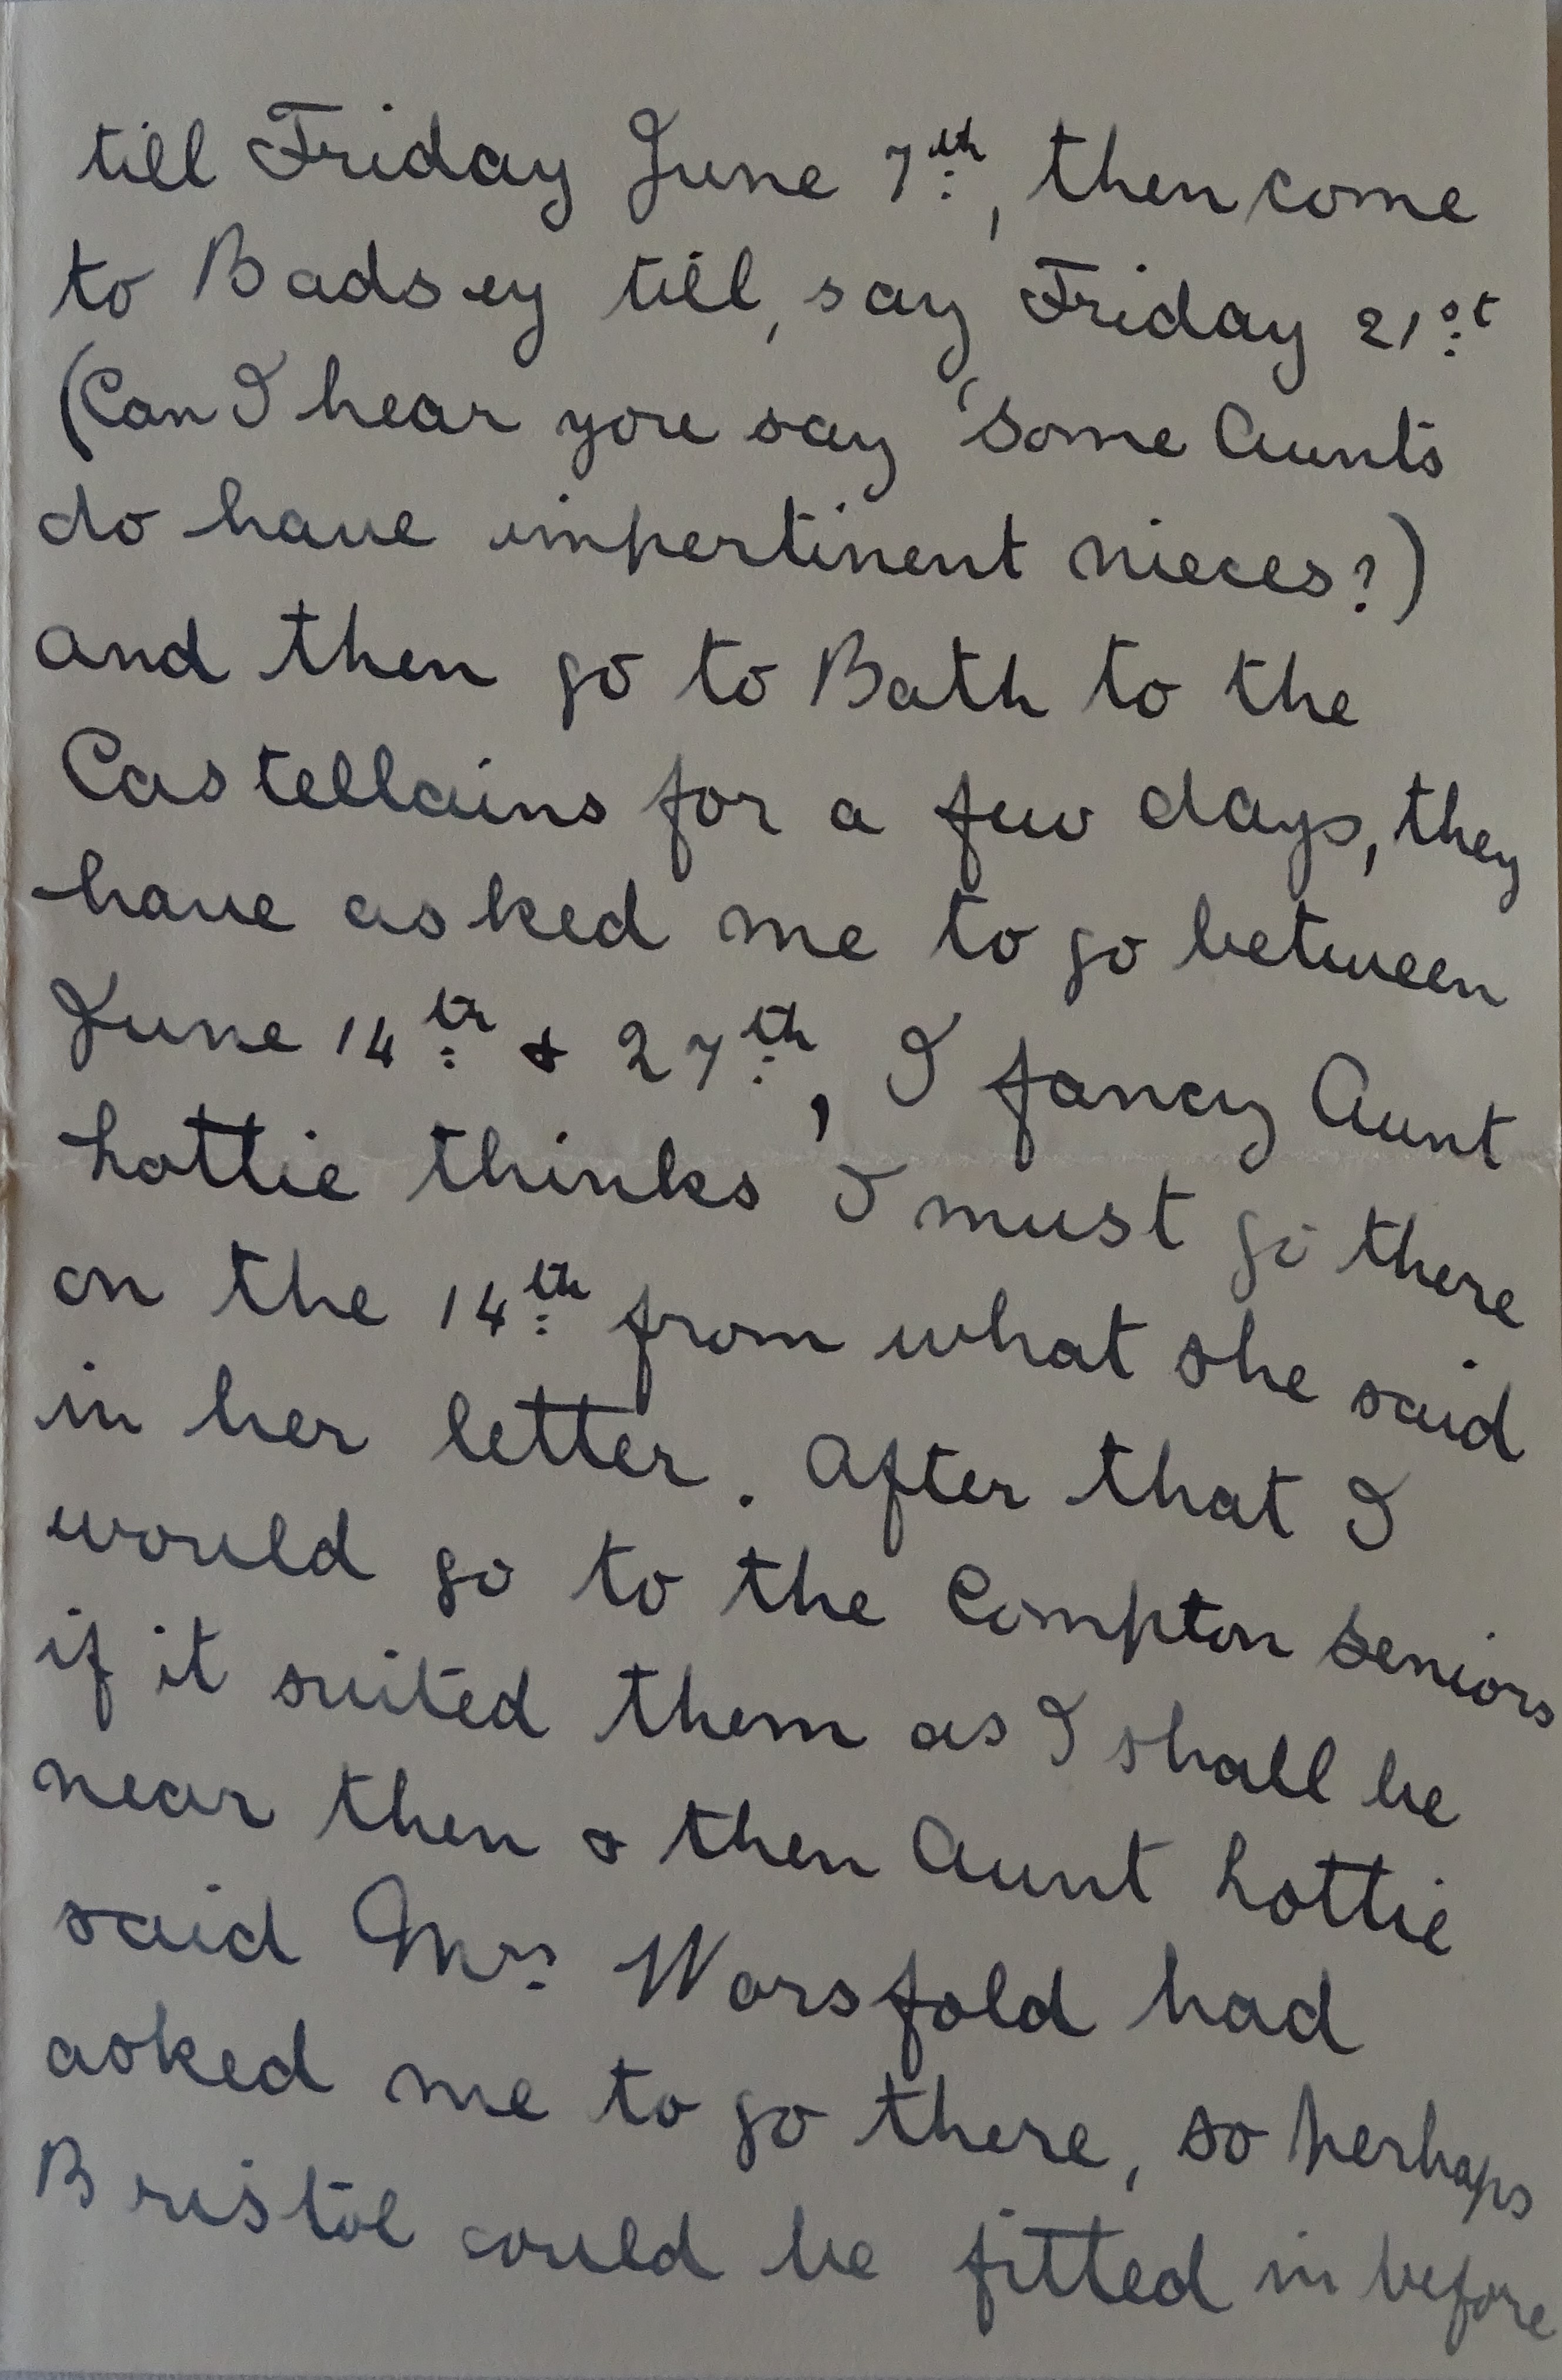 till Friday June 7th, then come
to Badsey till, say Friday 21st
(Can I hear you say 'Some Aunts
do have impertinent nieces?)
and then go to Bath to the
Castellains for a few days, they
have asked me to go between
June 14th & 27th, I fancy Aunt
Lottie thinks I must go there
on the 14th from what she said
in her letter. After that I
would go to the Compton Seniors
if it suited them as I shall be
near then & then Aunt Lottie
said Mrs Worsfold had
asked me to go there, so perhaps
Bristol could be fitted in before